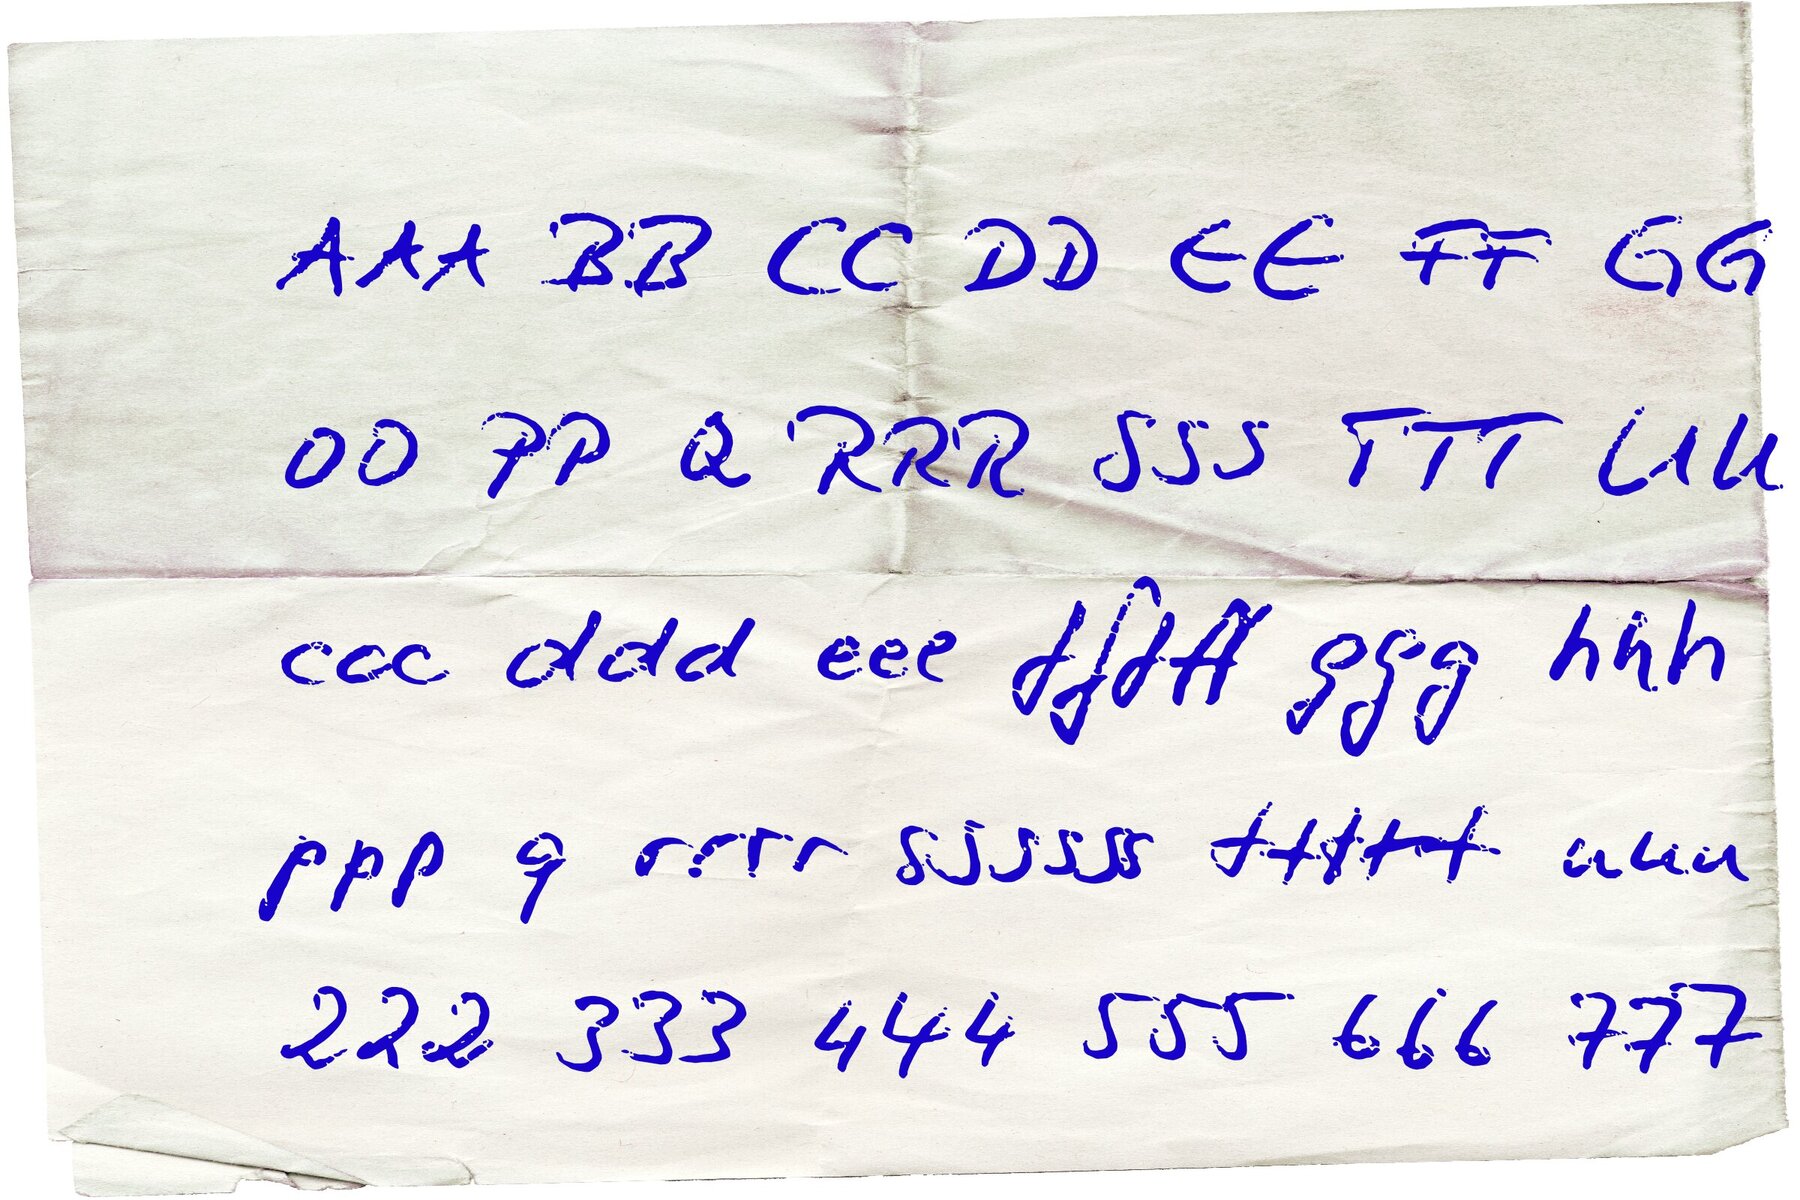 AAA BB CC DD EE FF GG
OO PP Q RRR SSS TTT UUU
ccc ddd eee ggg hhh
ppp q rrrr ssssss uuu
222 333 444 555 666 777